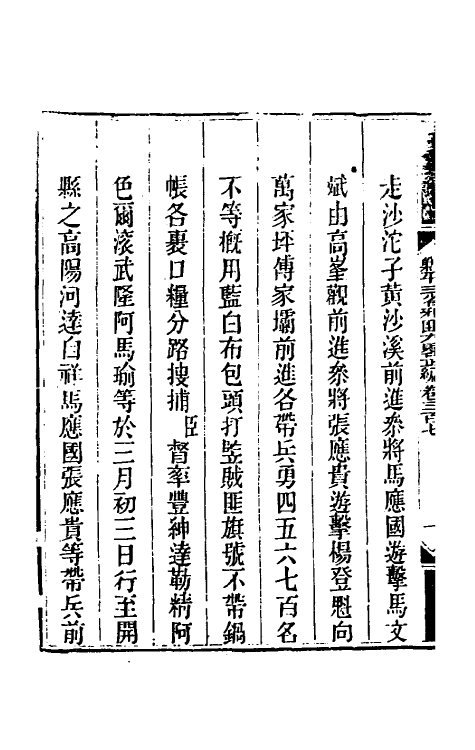 走沙沱子黃沙溪前進叅將馬應國遊擊馬文
斌由高峯觀前進叅將張應貴遊擊楊登魁向
萬家坪傅家壩前進各帶兵勇四五六七百名
不等槪用藍白布包頭打竪賊匪旗號不帶鍋
帳各裹口糧分路搜捕臣督率豐紳達勒精阿
色爾滚武隆阿馬瑜等於三月初三日行至開
縣之高陽河達白祥馬應國張應貴等帶兵前